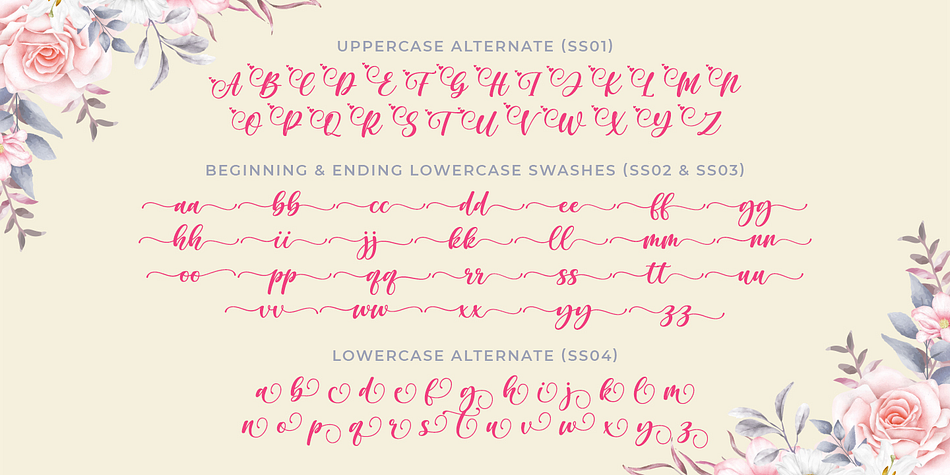 UPPERCASE ALTERNATE (SS01)
A B C D E F G H I J K L M N
O P Q R S T U V W X Y Z
BEGINNING & ENDING LOWERCASE SWASHES (SS02 & SS03)
aa bb cc dd ee ff gg
hh ii jj kk ll mm nn
oo pp qq rr ss tt uu
vv ww xx yy zz
LOWERCASE ALTERNATE (SS04)
a b c d e f g h i j k l m
n o p q r s t u v w x y z